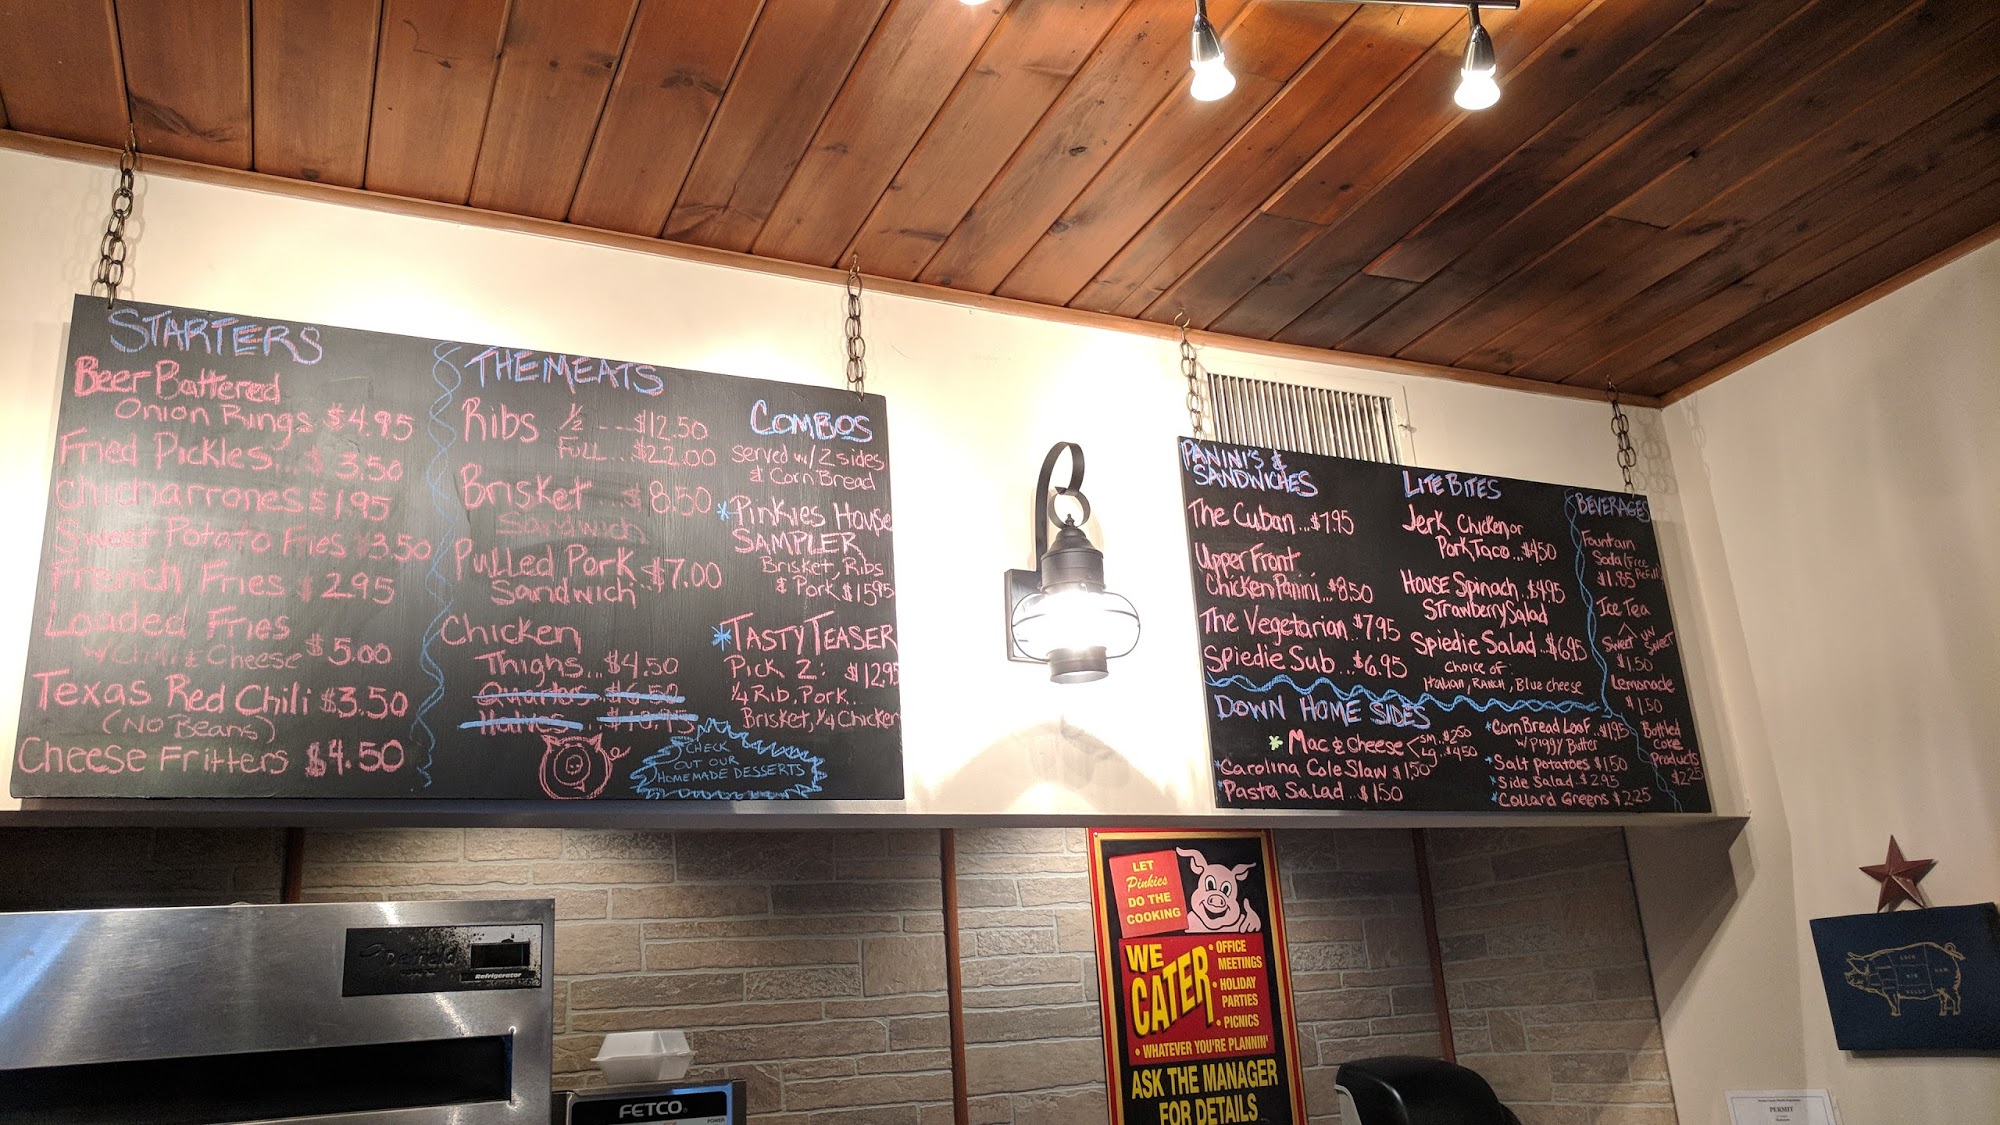 STARTERS
Beer Battered
Onion Rings $4.95
Fried Pickles... $3.50
Chicharrones $1.95
Sweet Potato Fries $3.50
French Fries $2.95
Loaded Fries
w/ Chili & Cheese $5.00
Texas Red Chili $3.50
(No Beans)
Cheese Fritters $4.50
THE MEATS
Ribs 1/2 ---- $12.50
Full... $22.00
Brisket $8.50
Sandwich
Pulled Pork $7.00
Sandwich
Chicken
Thighs... $4.50
Quarters $6.50
Halves $10.95
CHECK
OUT OUR
HOMEMADE DESSERTS
COMBOS
served w/ 2 sides
& Corn Bread
*Pinkies House
SAMPLER
Brisket, Ribs
& Pork $15.95
*TASTY TEASER
Pick 2: $12.95
1/4 Rib, Pork..
Brisket, 1/4 Chicken
PANINI'S &
SANDWICHES
The Cuban... $7.95
Upper Front
Chicken Panini.. $8.50
The Vegetarian. $7.95
Spiedie Sub... $6.95
LITE BITES
Jerk Chicken or
Pork Taco... $4.50
House Spinach $4.95
Strawberry Salad
Spiedie Salad.. $6.95
Choice of:
Italian, Ranch, Blue cheese
BEVERAGES
Fountain
Soda (Free
Refill)
$1.85
Ice Tea
Sweet UN Sweet
$1.50
Lemonade
$1.50
Bottled
Coke
Products
$2.25
DOWN HOME SIDES
* Mac & Cheese sm.. $2.50
Lg... $4.50
*Carolina Cole Slaw $1.50
*Pasta Salad.. $1.50
*Corn Bread Loaf.. $1.95
w/ Piggy Butter
*Salt Potatoes $1.50
*Side Salad.. $2.95
*Collard Greens $2.25
Delfield
Refrigerator
FETCO
POWER
LET
Pinkies
DO THE
COOKING
WE
CATER
• OFFICE
MEETINGS
• HOLIDAY
PARTIES
• PICNICS
• WHATEVER YOU'RE PLANNIN'
ASK THE MANAGER
FOR DETAILS
HAM
BELLY
PERMIT